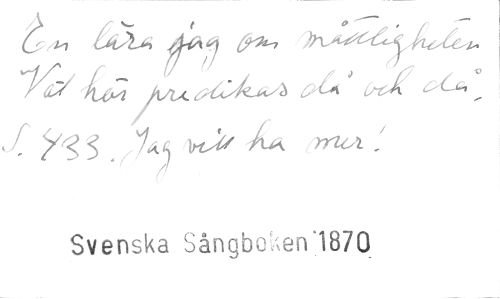 En lära jag om måttligheten
Vat hör predikas då och då.
S. 433. Jag vill ha mer!
Svenska Sångboken 1870